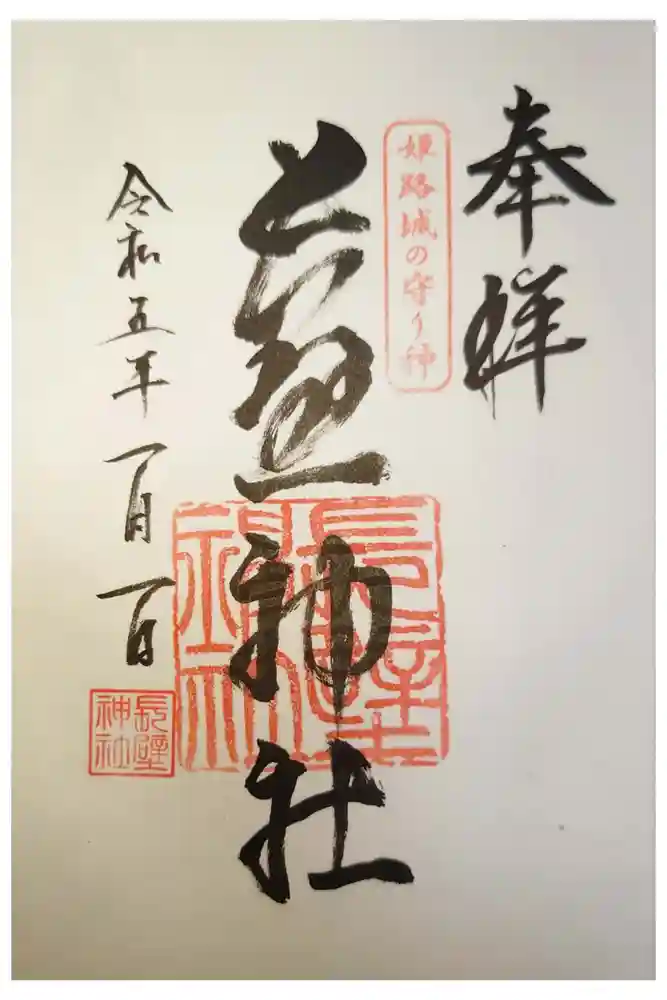 奉拝
姫路城の守り神
長壁神社
令和五年一月一日
長壁
神社
長壁
神社